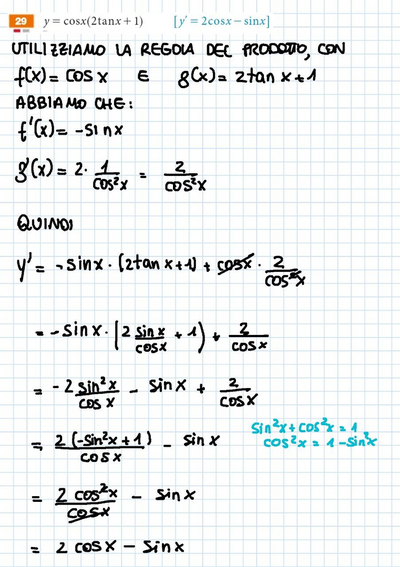 29 y = cosx(2tanx + 1) [y' = 2cosx − sinx]
UTILIZZIAMO LA REGOLA DEL PRODOTTO, CON
f(x) = COS x E g(x) = 2tan x + 1
ABBIAMO CHE:
f'(x) = -sin x
g'(x) = 2 · 1/cos²x = 2/cos²x
QUINDI
y' = -sinx · (2tan x + 1) + cosx · 2/cos²x
= -sinx · (2 sinx/cosx + 1) + 2/cosx
= -2 sin²x/cosx - sinx + 2/cosx
= 2(-sin²x + 1)/cosx - sinx
sin²x + cos²x = 1
cos²x = 1 - sin²x
= 2 cos²x/cosx - sinx
= 2 cosx - sinx